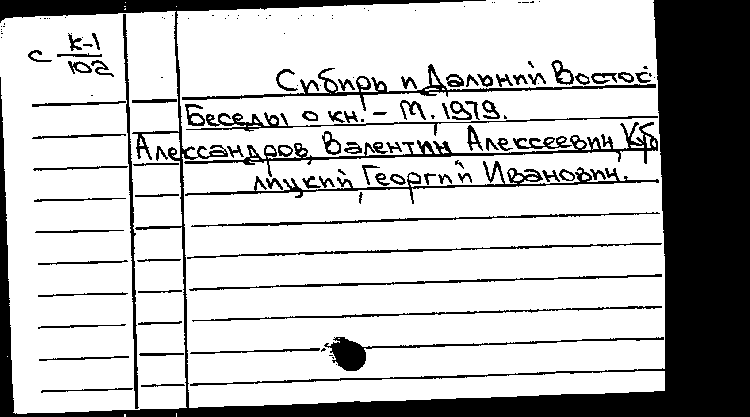 с К-1
102
Сибирь и Дальний Восток
Беседы о кн. - М, 1979.
Александров, Валентин Алексеевич, Куб
лицкий, Георгий Иванович.